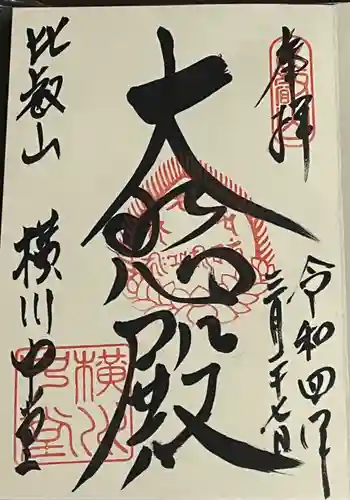 奉拝
令和四年
三月二十七日
大悲殿
比叡山 横川中堂
横川中堂